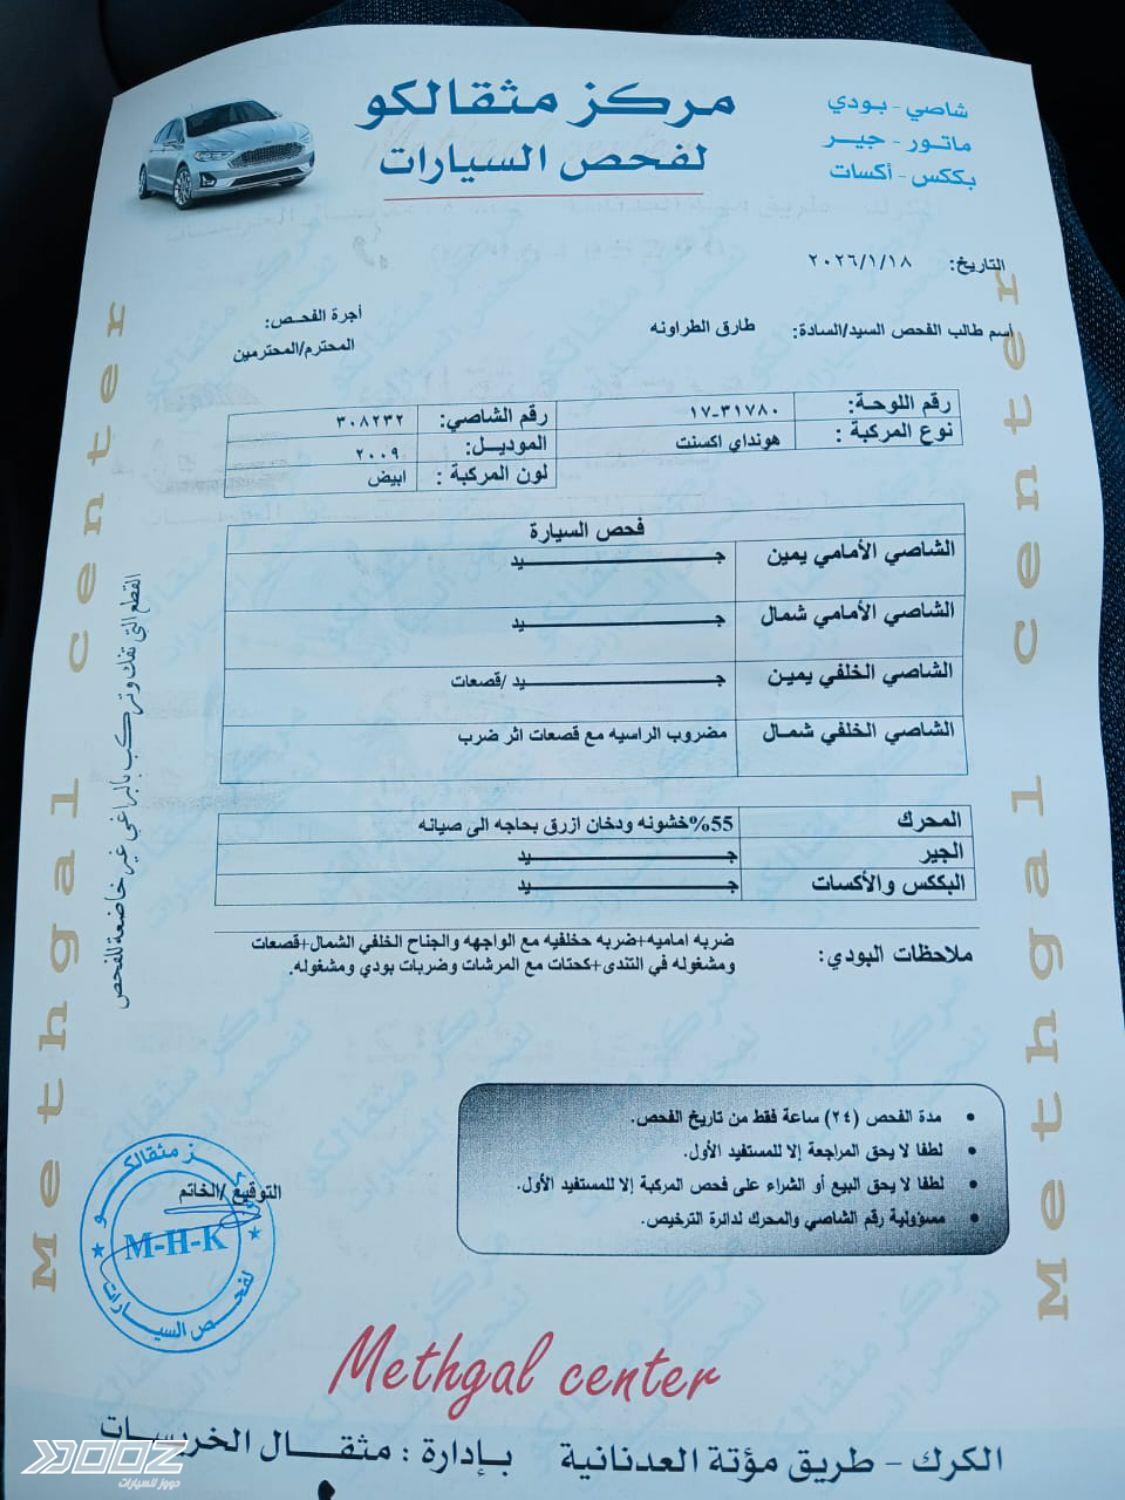 مركز مثقالكو
لفحص السيارات
شاصي - بودي
ماتور - جير
بككس - أكسات
التاريخ: ٢٠٢٦/١/١٨
أسم طالب الفحص السيد/السادة: طارق الطراونه
أجرة الفحص:
المحترم/المحترمين
رقم اللوحة: ٣١٧٨٠-١٧ رقم الشاصي: ٣٠٨٢٣٢
نوع المركبة : هونداي اكسنت الموديل: ٢٠٠٩
لون المركبة : ابيض
فحص السيارة
الشاصي الأمامي يمين جيد
الشاصي الأمامي شمال جيد
الشاصي الخلفي يمين جيد /قصعات
الشاصي الخلفي شمال مضروب الراسيه مع قصعات اثر ضرب
المحرك 55%خشونه ودخان ازرق بحاجه الى صيانه
الجير جيد
البككس والأكسات جيد
ملاحظات البودي: ضربه اماميه+ضربه حخلفيه مع الواجهه والجناح الخلفي الشمال+قصعات
ومشغوله في التندى+كحتات مع المرشات وضربات بودي ومشغوله.
القطع التي تفك وتركب بالبراغي غير خاضعة للفحص
Methgal center
Methgal center
مدة الفحص (٢٤) ساعة فقط من تاريخ الفحص.
لطفا لا يحق المراجعة إلا للمستفيد الأول.
لطفا لا يحق البيع أو الشراء على فحص المركبة إلا للمستفيد الأول.
مسؤولية رقم الشاصي والمحرك لدائرة الترخيص.
التوقيع /الخاتم
مركز مثقالكو
M-H-K
لفحص السيارات
Methgal center
الكرك - طريق مؤتة العدنانية بإدارة : مثقال الخريسات
دووز للسيارات